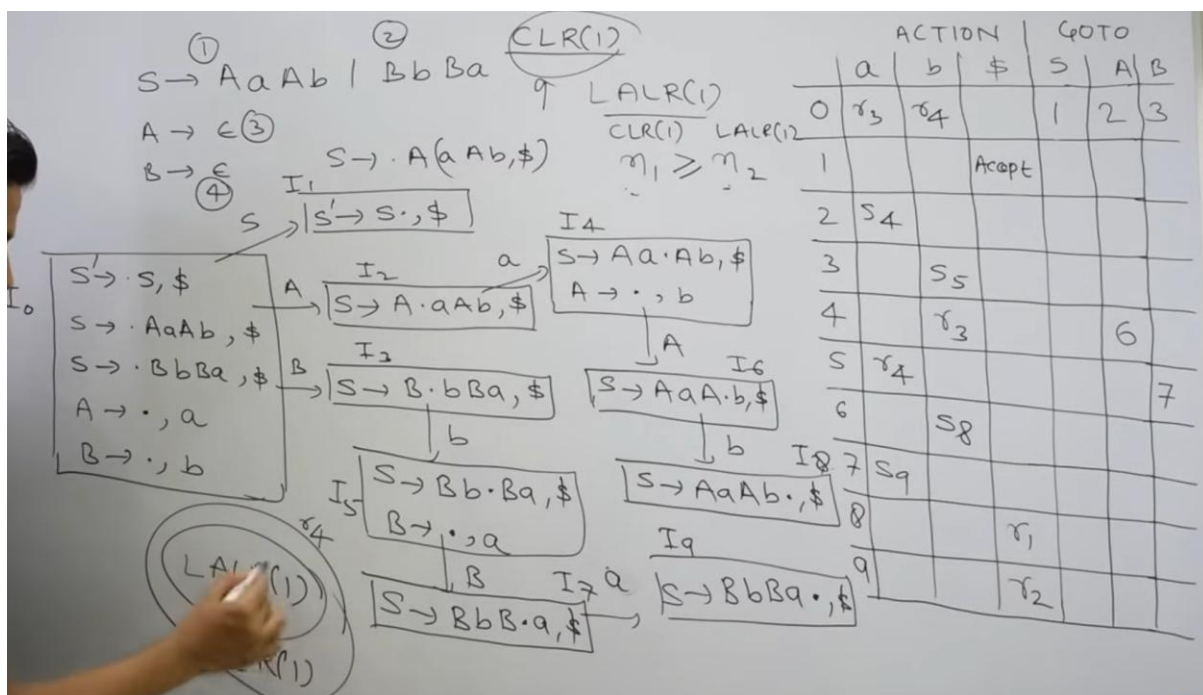 ① ②
S → AaAb | BbBa
A → ϵ ③
B → ϵ
④
CLR(1)
9 LALR(1)
CLR(1) LALR(1)
n₁ ⩾ n₂
S → .A(aAb,$)
I₀
S' → .S, $
S → .AaAb, $
S → .BbBa, $
A → ., a
B → ., b
S
I₁
S' → S., $
A
I₂
S → A.aAb, $
a
I4
S → Aa.Ab, $
A → ., b
B
I₃
S → B.bBa, $
A
I6
S → AaA.b,$
b
I₅
S → Bb.Ba, $
B → ., a
r4
b
I8
S → AaAb., $
B
I₇
S → BbB.a, $
a
I9
S → BbBa., $
LALR(1)
R(1)
ACTION | GOTO
a b $ S A B
0 r₃ r₄ 1 2 3
1 Accept
2 S4
3 S5
4 r₃ 6
5 r₄ 7
6 S8
7 S9
8 r₁
9 r₂